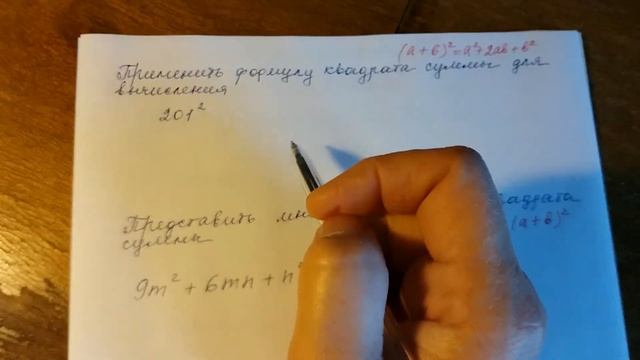 (a + b)² = a² + 2ab + b²
Применить формулу квадрата суммы для
вычисления
201²
Представить
(a + b)²
суммы
9m² + 6mn + n